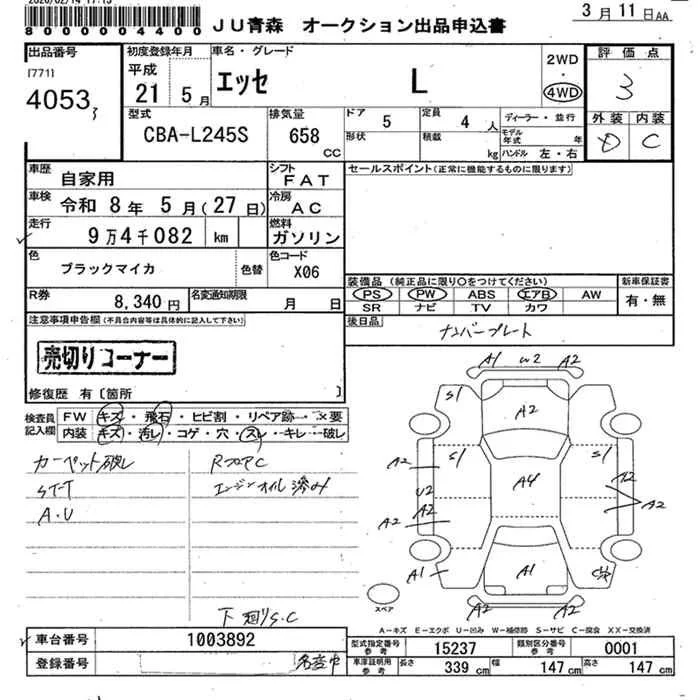 2020/02/14 17:13
8000004400
JU青森 オークション出品申込書
3月11日AA
出品番号
[771]
4053
初度登録年月
平成
21 5月
車名・グレード
エッセ L
2WD
・
4WD
評価点
3
外装 内装
D C
型式
CBA-L245S
排気量
658
CC
ドア 5
形状
定員 4 人
積載 kg
ディーラー・並行
モデル年式 年
ハンドル 左・右
車歴
自家用
シフト
FAT
セールスポイント(正常に機能するものに限ります)
車検
令和 8年 5月(27日)
冷房
AC
走行
9万4千082 km
燃料
ガソリン
色
ブラックマイカ
色替
色コード
X06
装備品(純正品に限り○をつけてください)
PS PW ABS エアB AW
SR ナビ TV カワ
新車保証書
有・無
R券
8,340円
名変通知期限
月 日
後日品
ナンバープレート
注意事項申告欄(不具合内容等は具体的に記入して下さい)
売切りコーナー
修復歴 有〔箇所 〕
検査員記入欄
FW キズ・飛石・ヒビ割・リペア跡・×要
内装 キズ・汚レ・コゲ・穴・スレ・キレ・破レ
カーペット破レ
ST-T
A.U
RフロアC
エンジンオイル済み
下廻りS.C
A1 W2 A2
S1 A2
S1 S1
A2 A4 A2
U2
A2
A2 A2
A1 A1
A2 A2
スペア
A―キズ E―エクボ U―凹み W―補修跡 S―サビ C―腐食 XX―交換済
車台番号
1003892
登録番号
名変中
型式指定番号
参考
15237
類別区分番号
参考
0001
車庫証明用
参考
長さ 339 cm
幅 147 cm
高さ 147 cm